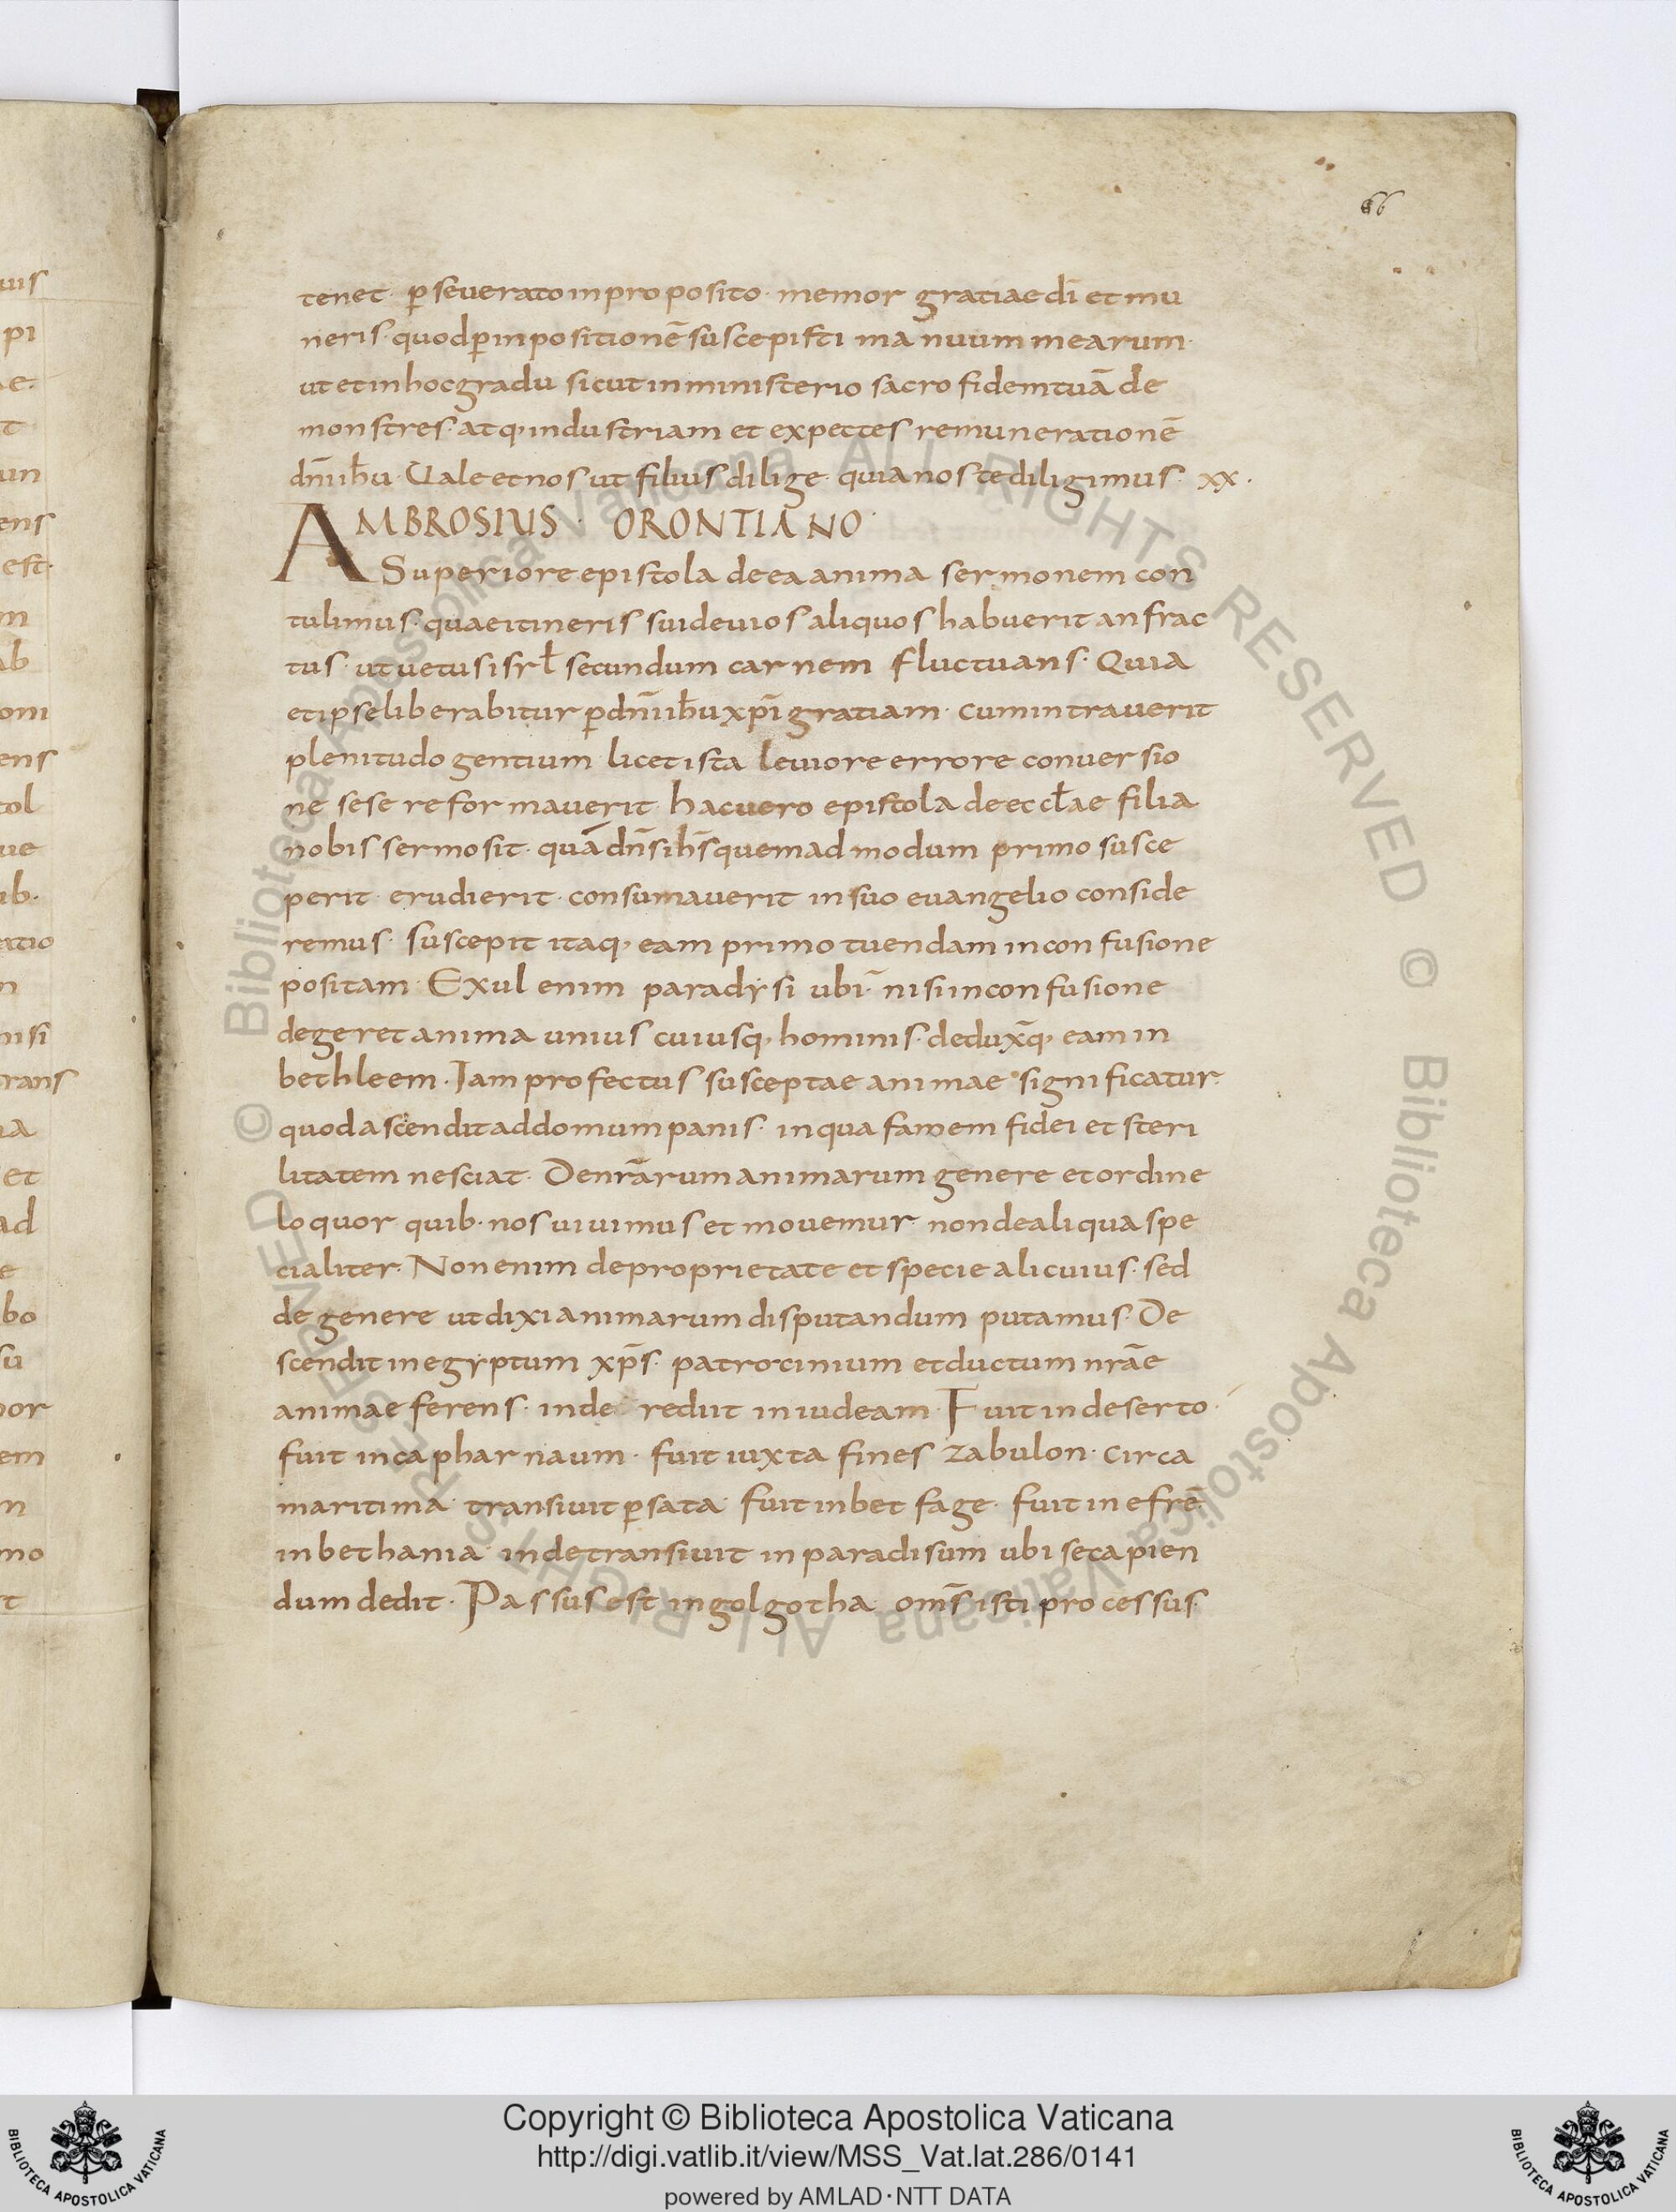 66
tenet· ꝑseuerato in proposito· memor gratiae dī et mu
neris· quod ꝑ inpositionē suscepisti manuum mearum·
ut et in hoc gradu sicut in ministerio sacro fidem tuā de
monstres· atq; industriam et expectes remunerationē
dn̄i ih̄u· Uale et nos ut filius dilige· quia nos te diligimus· xx·
AMBROSIUS· ORONTIANO·
Superiore epistola de ea anima sermonem con
tulimus· quae itineris sui deuios aliquos habuerit anfrac
tus· ut uetus isrl̄ secundum carnem fluctuans· Quia
et ipse liberabitur ꝑ dn̄i ih̄u xp̄i gratiam· cum intrauerit
plenitudo gentium· licet ista leuiore errore conuersio
ne sese reformauerit· hac uero epistola de eccl̄ae filia
nobis sermo sit· quā dn̄s ih̄s quemadmodum primo susce
perit· erudierit· consumauerit in suo euangelio conside
remus· suscepit itaq; eam primo tuendam in confusione
positam· Exul enim paradysi ubi nisi in confusione
degeret anima unius cuiusq; hominis· deduxq; eam in
bethleem· Iam profectus susceptae animae significatur·
quod ascendit ad domum panis· in qua famem fidei et steri
litatem nesciat· De nr̄arum animarum genere et ordine
loquor quib· nos uiuimus et mouemur· non de aliqua spe
cialiter· Non enim de proprietate et specie alicuius· sed
de genere ut dixi animarum disputandum putamus· De
scendit in egyptum xp̄s· patrocinium et ductum nr̄ae
animae ferens· inde rediit in iudeam· Fuit in deserto·
fuit in capharnaum· fuit iuxta fines zabulon· circa
maritima· transiuit ꝑ sata· fuit in betfage· fuit in efrē
in bethania· inde transiuit in paradisum ubi se capien
dum dedit· Passus est in golgotha· om̄s isti processus·
Copyright © Biblioteca Apostolica Vaticana
http://digi.vatlib.it/view/MSS_Vat.lat.286/0141
powered by AMLAD·NTT DATA
BIBLIOTECA APOSTOLICA VATICANA
BIBLIOTECA APOSTOLICA VATICANA
© Biblioteca Apostolica Vaticana ALL RIGHTS RESERVED © Biblioteca Apostolica Vaticana ALL RIGHTS RESERVED